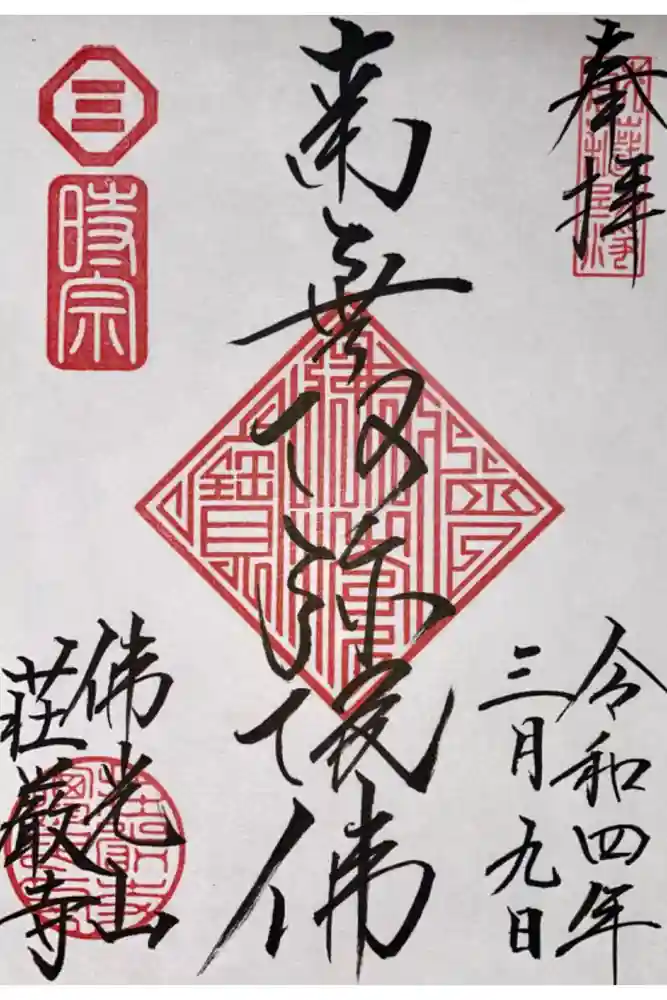 奉拝
令和四年
三月九日
南無阿弥陀佛
時宗
佛光山
荘厳寺